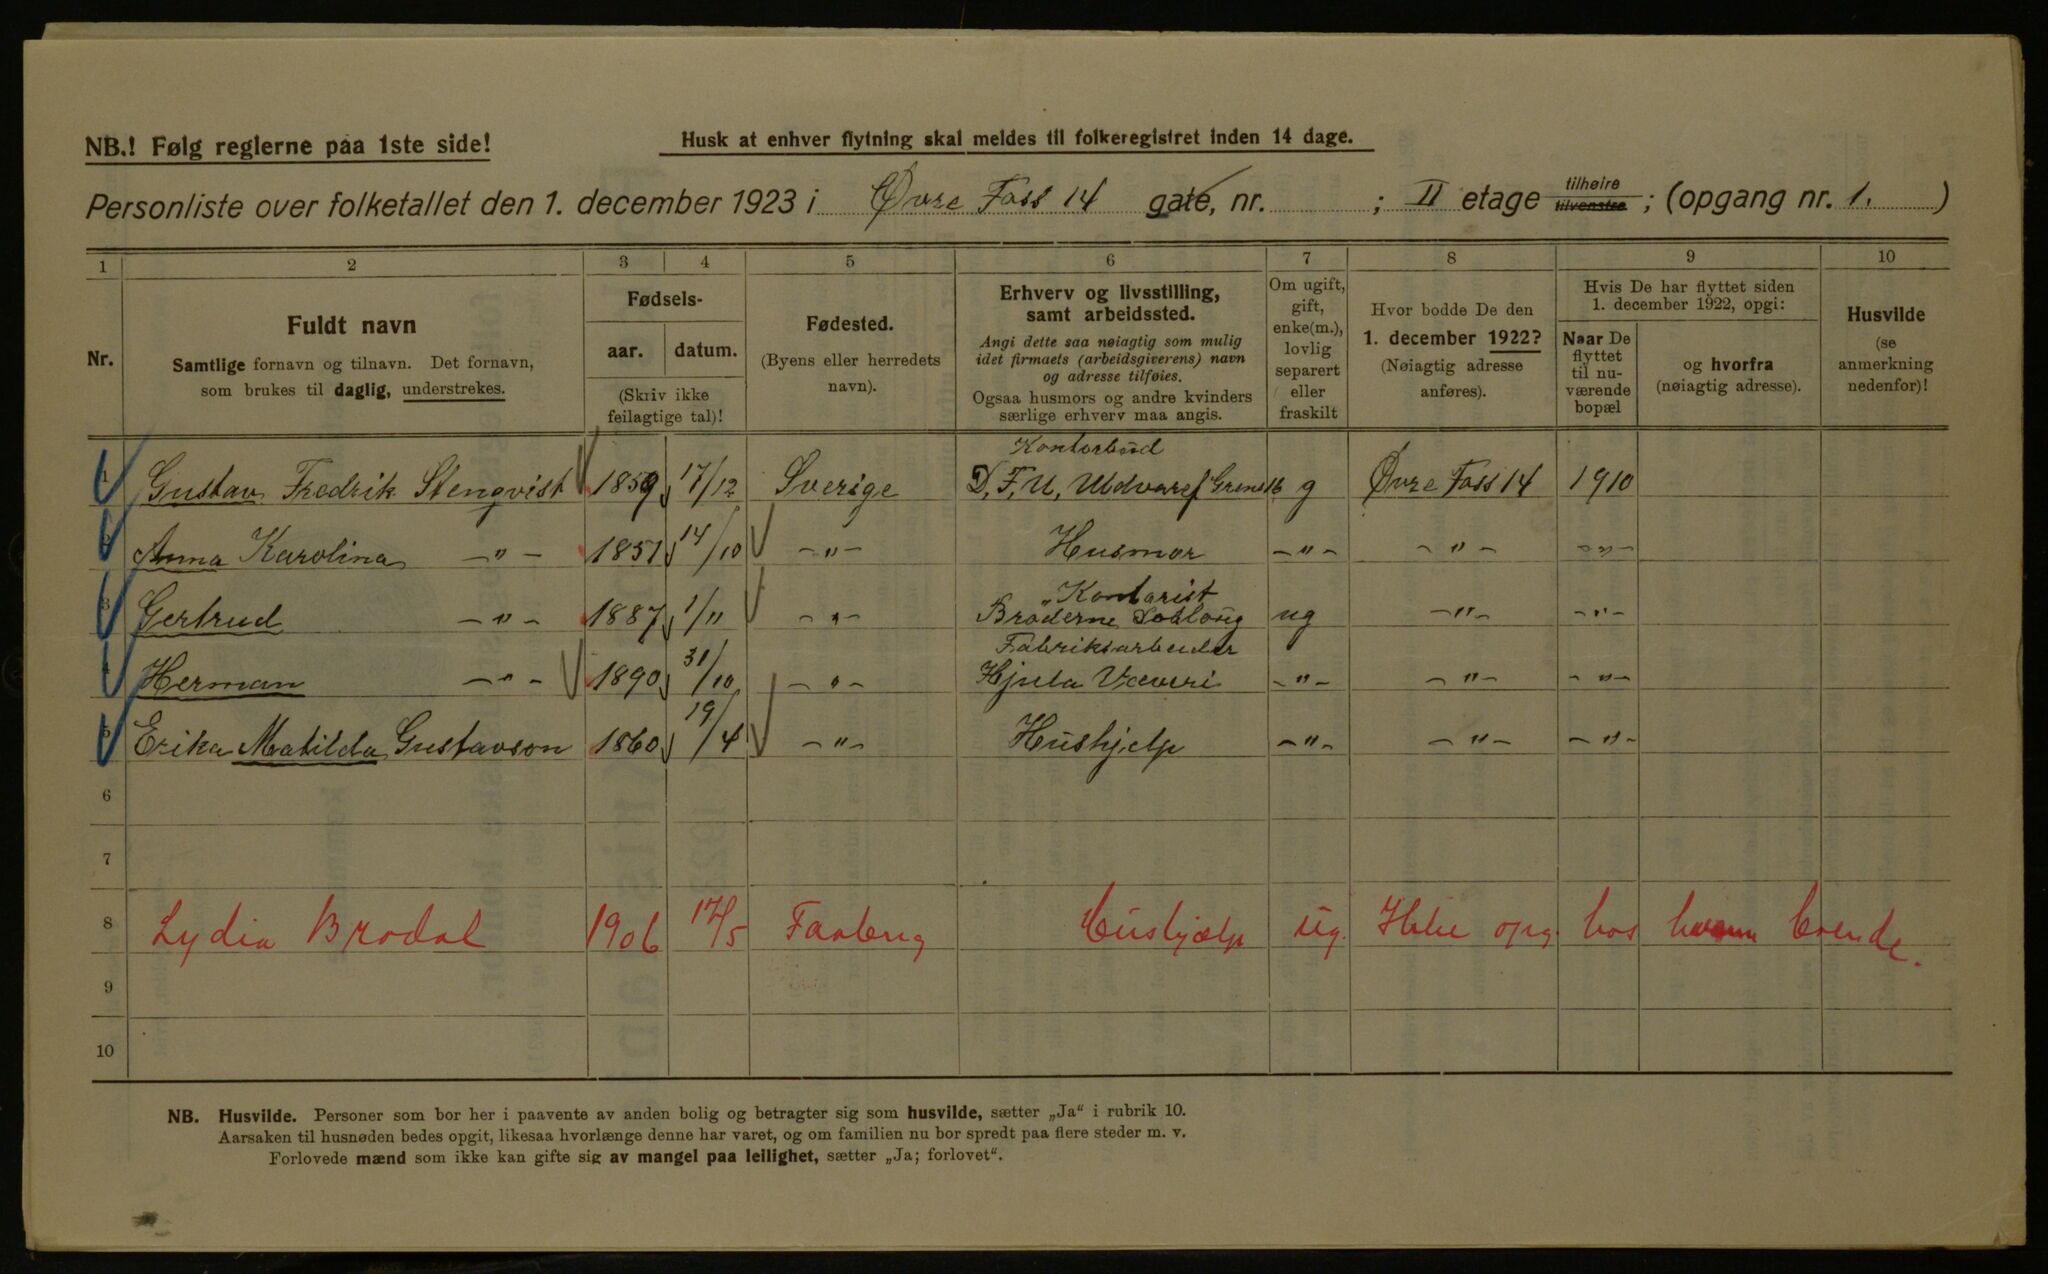 NB.! Følg reglerne paa 1ste side!
Husk at enhver flytning skal meldes til folkeregistret inden 14 dage.
Personliste over folketallet den 1. december 1923 i Øvre Foss 14 gate, nr. ; II etage tilhøire tilvenstre ; (opgang nr. 1. )
1 2 3 4 5 6 7 8 9 10
Nr.
Fuldt navn
Samtlige fornavn og tilnavn. Det fornavn,
som brukes til daglig, understrekes.
Fødsels-
aar. datum.
(Skriv ikke
feilagtige tal)!
Fødested.
(Byens eller herredets
navn).
Erhverv og livsstilling,
samt arbeidssted.
Angi dette saa nøiagtig som mulig
idet firmaets (arbeidsgiverens) navn
og adresse tilføies.
Ogsaa husmors og andre kvinders
særlige erhverv maa angis.
Om ugift,
gift,
enke(m.),
lovlig
separert
eller
fraskilt
Hvor bodde De den
1. december 1922?
(Nøiagtig adresse
anføres).
Hvis De har flyttet siden
1. december 1922, opgi:
Naar De
flyttet
til nu-
værende
bopæl
og hvorfra
(nøiagtig adresse).
Husvilde
(se
anmerkning
nedenfor)!
Kontorbud
1 Gustav Fredrik Stenqvist 1859 17/12 Sverige D.F.U. Uldvaref Grens 16 g Øvre Foss 14 1910
2 Anna Karolina —"— 1851 14/10 —"— Husmor —"— —"— —"—
Kontorist
3 Gertrud —"— 1887 1/11 —"— Brøderne ug —"— —"—
Fabriksarbeider
4 Herman —"— 1890 31/10 —"— Hjula Væveri —"— —"— —"—
5 Erika Matilda Gustavson 1860 19/4 —"— Hushjelp —"— —"— —"—
6
7
8 Lydia Brodal 1906 17/5 Faaberg Hushjælp ug. Ikke opg. hos hvem boende.
9
10
NB. Husvilde. Personer som bor her i paavente av anden bolig og betragter sig som husvilde, sætter „Ja“ i rubrik 10.
Aarsaken til husnøden bedes opgit, likesaa hvorlænge denne har varet, og om familien nu bor spredt paa flere steder m. v.
Forlovede mænd som ikke kan gifte sig av mangel paa leilighet, sætter „Ja; forlovet“.